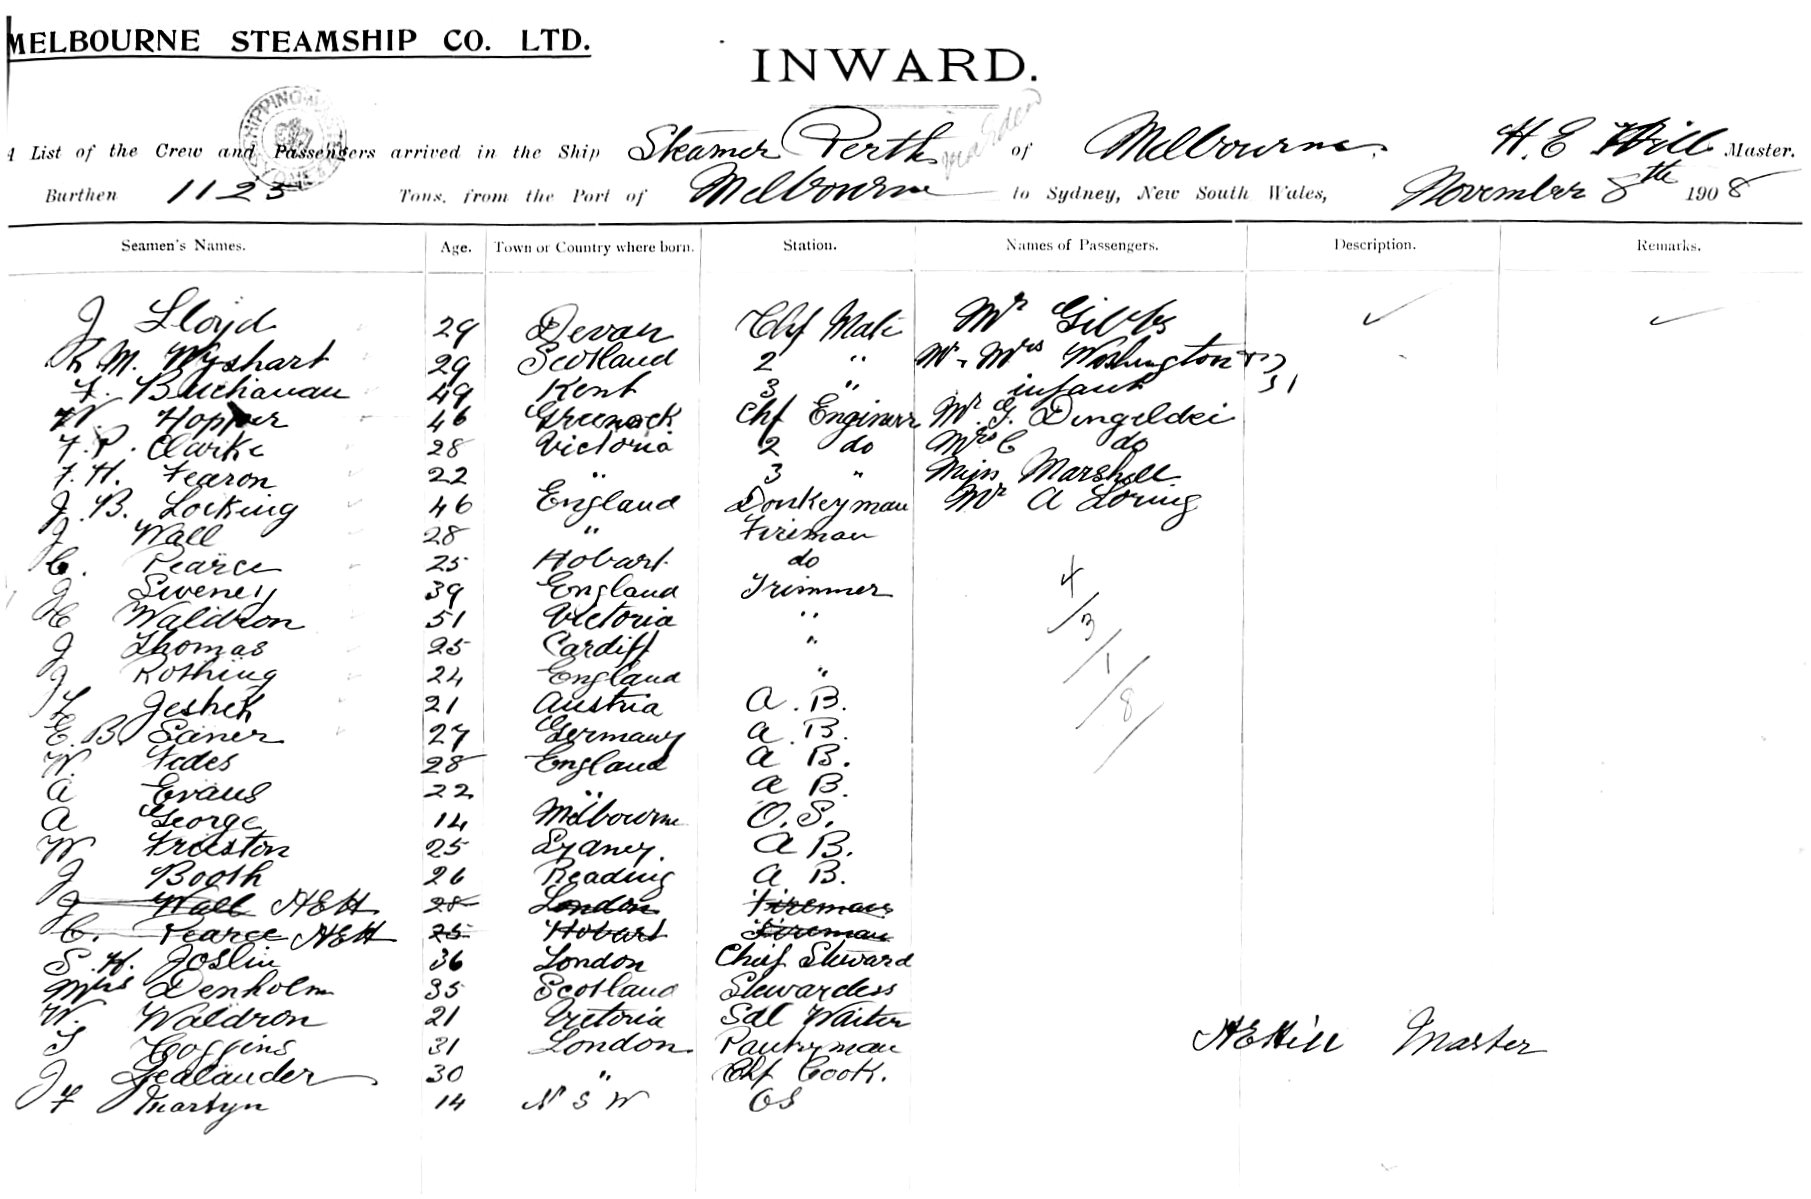 MELBOURNE STEAMSHIP CO. LTD.
INWARD.
A List of the Crew and Passengers arrived in the Ship Steamer Perth via Eden of Melbourne. H. E Hill Master.
Burthen 1123 Tons, from the Port of Melbourne to Sydney, New South Wales, November 8th 1908
Seamen's Names. Age. Town or Country where born. Station. Names of Passengers. Description. Remarks.
J Lloyd 29 Devan Chf Mate Mr Gibbs
M. Wyshart 29 Scotland 2 " Mr & Mrs Washington &
F. Buchanan 49 Kent 3 " infant
W. Hopper 46 Greenock Chf Engineer Mr. G. Dingeldei
F. P. Clarke 28 Victoria 2 do Mrs C do
F. H. Fearon 22 " 3 " Miss Marshall
J. B. Locking 46 England Donkeyman Mr A Loring
J Wall 28 " Fireman
C. Pearce 25 Hobart do
J Sweney 39 England Trimmer 4
C Waldron 51 Victoria " 3
J Thomas 25 Cardiff " 1
J Rothing 24 England "
L Jeshek 21 Austria A. B. 8
E. B. Saner 27 Germany A. B.
W. Fedes 28 England A B.
A Evans 22 " A B.
A George 14 Melbourne O. S.
W Freeston 25 Sydney. A B.
J Booth 26 Reading A B.
J Wall HEH 28 London Fireman
C. Pearce HEH 25 Hobart Fireman
S. H. Joslin 36 London Chief Steward
Mrs Denholm 35 Scotland Stewardess
W. Waldron 21 Victoria Sal Waiter
S Coggins 31 London. Pantryman HEHill Master
J Gealander 30 " Chf Cook.
F Martyn 14 N S W OS